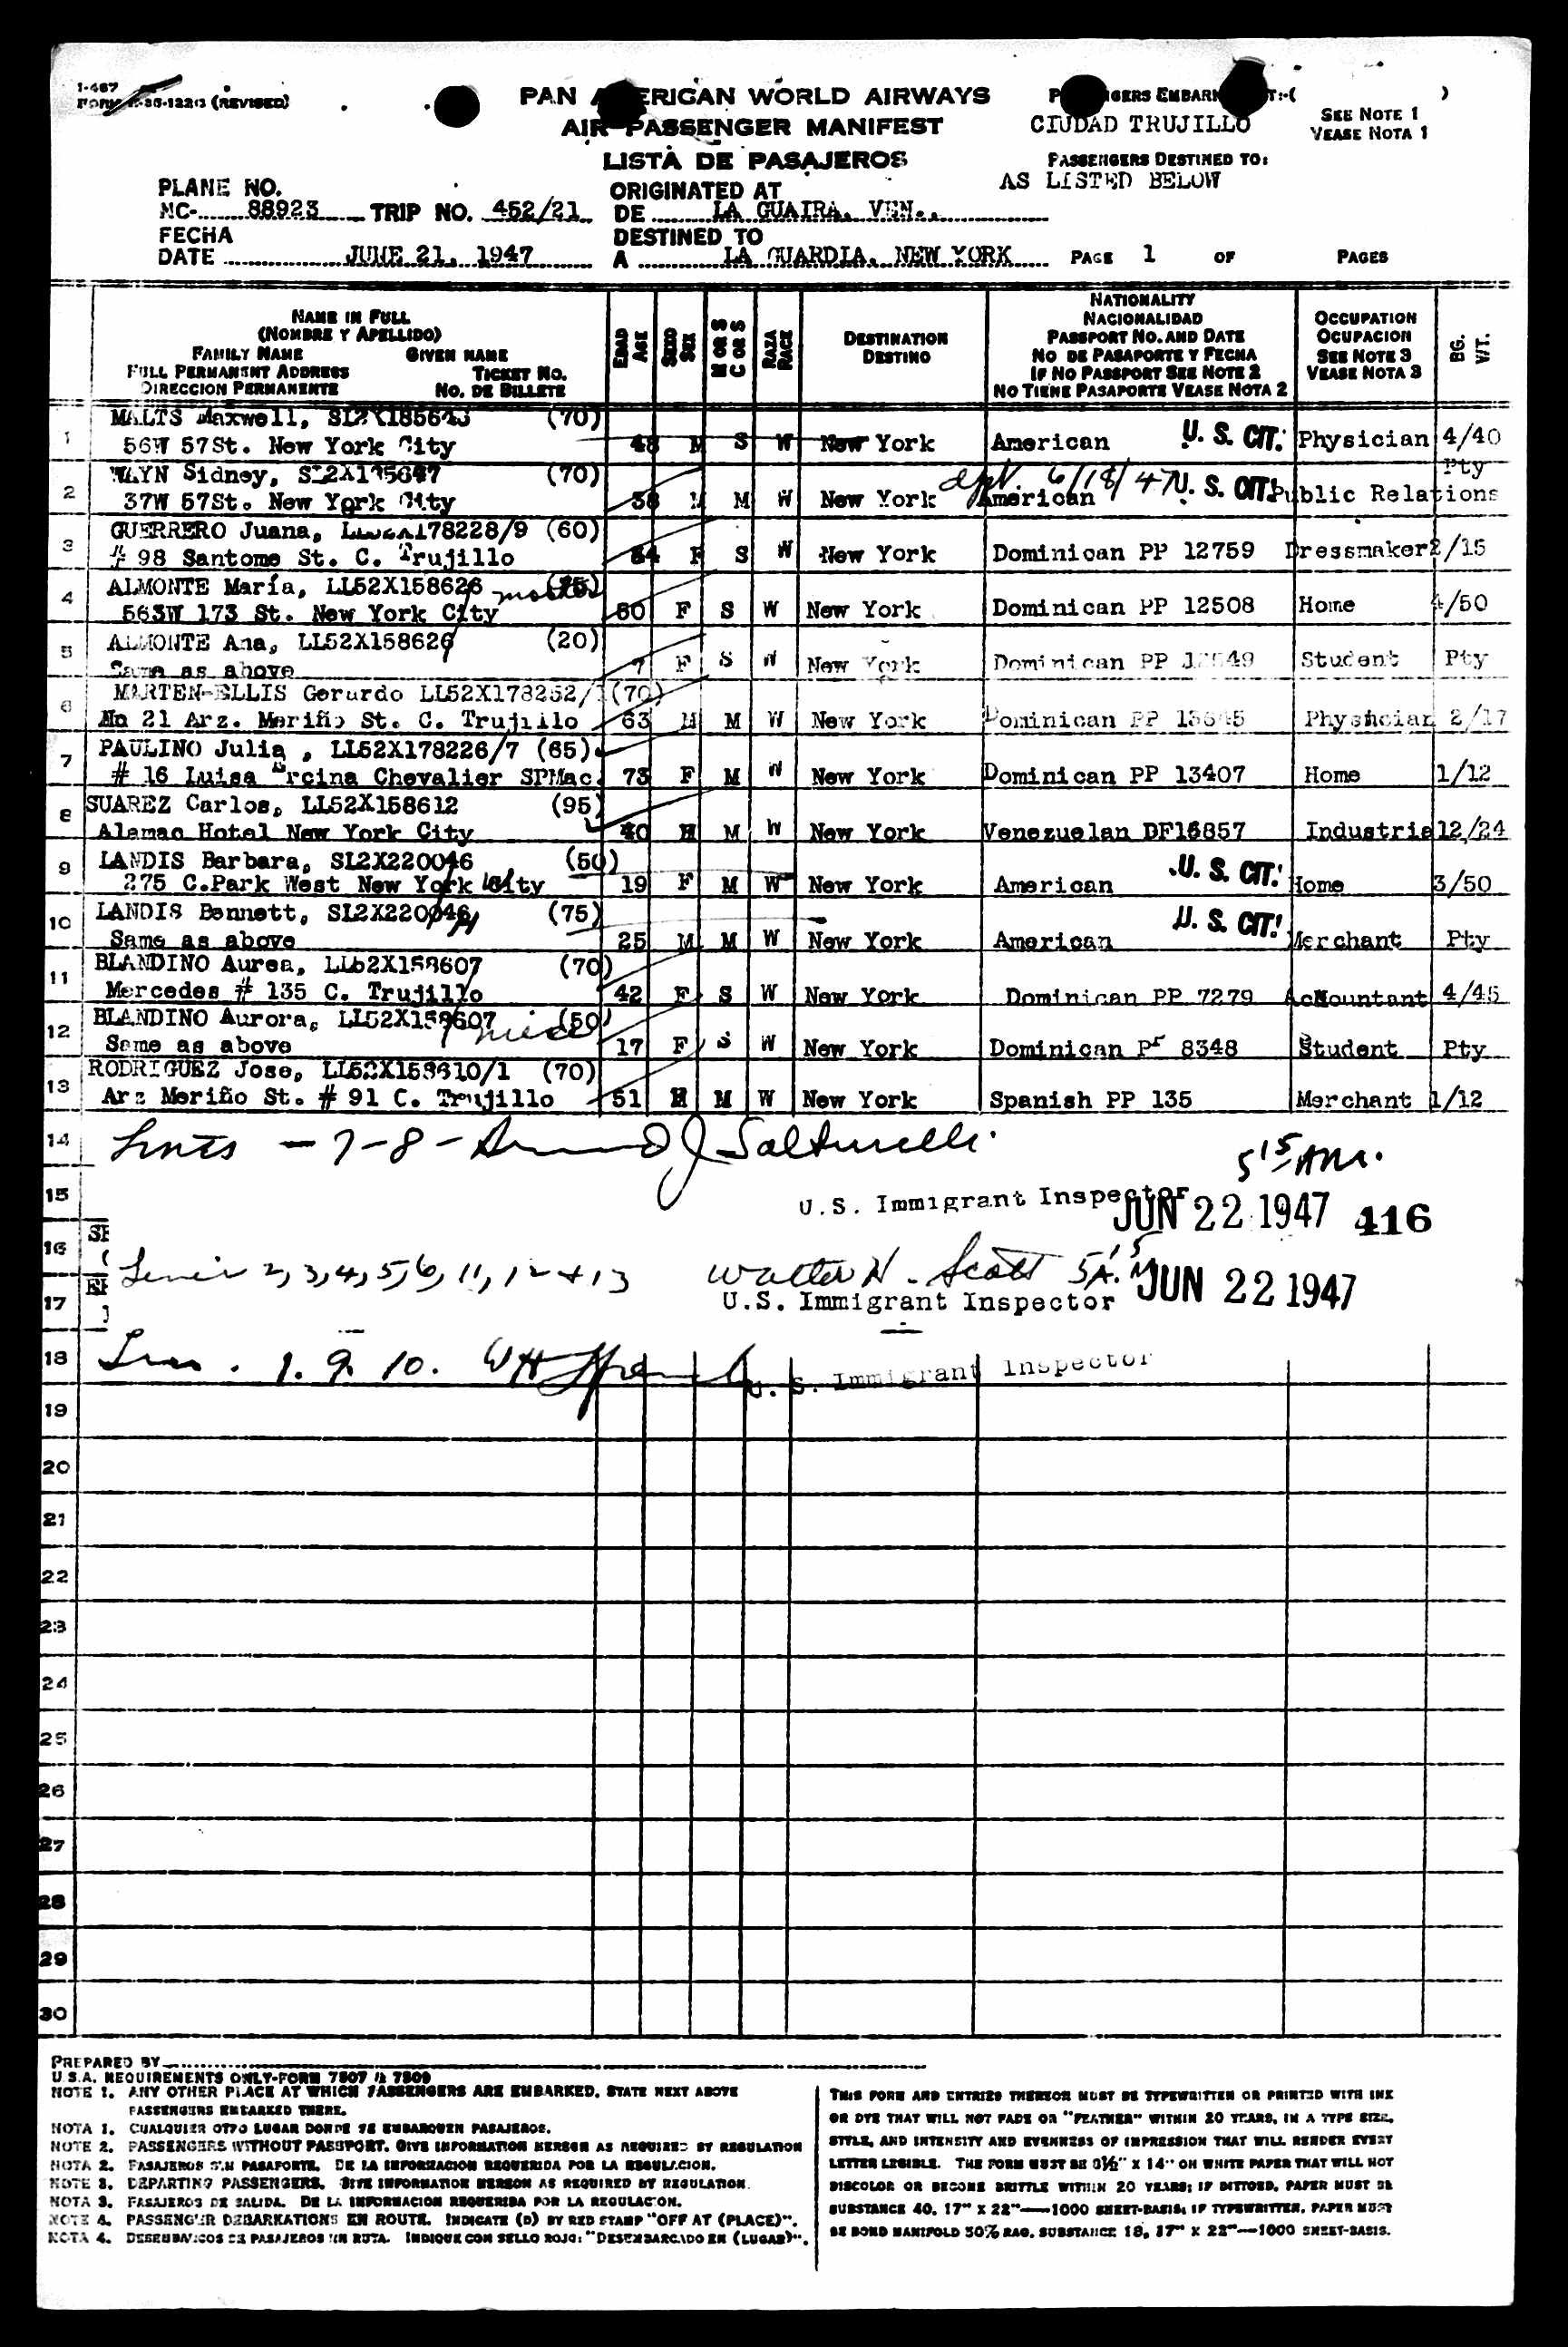 I-467
(REVISED)
PAN AMERICAN WORLD AIRWAYS
AIR PASSENGER MANIFEST
LISTA DE PASAJEROS
CIUDAD TRUJILLO
SEE NOTE 1
VEASE NOTA 1
PASSENGERS DESTINED TO:
AS LISTED BELOW
PLANE NO.
NC- 88923 TRIP NO. 452/21
ORIGINATED AT
DE LA GUAIRA, VEN.
FECHA
DATE JUNE 21, 1947
DESTINED TO
A LA GUARDIA, NEW YORK PAGE 1 OF PAGES
NAME IN FULL
(NOMBRE Y APELLIDO)
FAMILY NAME GIVEN NAME
FULL PERMANENT ADDRESS TICKET NO.
DIRECCION PERMANENTE NO. DE BILLETE
EDAD AGE
SEXO SEX
M OR S
C O S
RAZA RACE
DESTINATION
DESTINO
NATIONALITY
NACIONALIDAD
PASSPORT NO. AND DATE
NO DE PASAPORTE Y FECHA
IF NO PASSPORT SEE NOTE 2
NO TIENE PASAPORTE VEASE NOTA 2
OCCUPATION
OCUPACION
SEE NOTE 3
VEASE NOTA 3
BG.
WT.
1 MALTS Maxwell, (70)
56W 57St. New York City 48 M S W New York American U. S. CIT. Physician 4/40
2 WAYN Sidney, (70) Pty
37W 57St. New York City 38 M M W New York American 6/18/47 U. S. CIT. Public Relations
3 GUERRERO Juana, 178228/9 (60)
# 98 Santome St. C. Trujillo F S W New York Dominican PP 12759 Dressmaker 2/15
4 ALMONTE María, LL52X158626
563W 173 St. New York City F S W New York Dominican PP 12508 Home 4/50
5 ALMONTE Ana, LL52X158626 (20)
Same as above 7 F S W New York Dominican PP Student Pty
6 MARTEN-ELLIS Gerardo (70)
No 21 Arz. Meriño St. C. Trujillo 63 M M W New York Dominican PP Physician 2/17
7 PAULINO Julia , LL52X178226/7 (65)
# 16 Luisa Chevalier SPMac. 73 F M W New York Dominican PP 13407 Home 1/12
8 SUAREZ Carlos, LL52X158612 (95)
Alamac Hotel New York City 40 M M W New York Venezuelan DF16857 Industrial 2/24
9 LANDIS Barbara, SL2X220046 (50)
275 C.Park West New York City 19 F M W New York American U. S. CIT. Home 3/50
10 LANDIS Bennett, SL2X220046 (75)
Same as above 25 M M W New York American U. S. CIT. Merchant Pty
11 BLANDINO Aurea, LL52X158607 (70)
Mercedes # 135 C. Trujillo 42 F S W New York Dominican PP 7279 Accountant 4/45
12 BLANDINO Aurora, LL52X158607 (50) niece
Same as above 17 F S W New York Dominican PP 8348 Student Pty
13 RODRIGUEZ Jose, LL52X158610/1 (70)
Arz Meriño St. # 91 C. Trujillo 51 M M W New York Spanish PP 135 Merchant 1/12
14 - 7-8 -
5 15 AM.
15 U.S. Immigrant Inspector JUN 22 1947 416
16
2, 3, 4, 5, 6, 11, 12 + 13 Walter H. Scott 5 15 A.M. JUN 22 1947
17 U.S. Immigrant Inspector
18 1. 9. 10. U. S. Immigrant Inspector
19
20
21
22
23
24
25
26
27
28
29
30
PREPARED BY
U.S.A. REQUIREMENTS ONLY-FORM 7507 7509
NOTE 1. ANY OTHER PLACE AT WHICH PASSENGERS ARE EMBARKED, STATE NEXT ABOVE
PASSENGERS EMBARKED THERE.
NOTA 1. CUALQUIER OTRO LUGAR DONDE SE EMBARQUEN PASAJEROS.
NOTE 2. PASSENGERS WITHOUT PASSPORT. GIVE INFORMATION HEREON AS REQUIRED BY REGULATION
NOTA 2. PASAJEROS SIN PASAPORTE. DE LA INFORMACION REQUERIDA POR LA REGULACION.
NOTE 3. DEPARTING PASSENGERS. GIVE INFORMATION HEREON AS REQUIRED BY REGULATION.
NOTA 3. PASAJEROS DE SALIDA. DE LA INFORMACION REQUERIDA POR LA REGULACION.
NOTE 4. PASSENGER DEBARKATIONS EN ROUTE. INDICATE (D) BY RED STAMP "OFF AT (PLACE)".
NOTA 4. DESEMBARCOS DE PASAJEROS EN RUTA. INDIQUE CON SELLO ROJO: "DESEMBARCADO EN (LUGAR)".
THIS FORM AND ENTRIES THEREON MUST BE TYPEWRITTEN OR PRINTED WITH INK
OR DYE THAT WILL NOT FADE OR "FEATHER" WITHIN 20 YEARS, IN A TYPE SIZE,
STYLE, AND INTENSITY AND EVENNESS OF IMPRESSION THAT WILL RENDER EVERY
LETTER LEGIBLE. THE FORM MUST BE 8½" X 14" ON WHITE PAPER THAT WILL NOT
DISCOLOR OR BECOME BRITTLE WITHIN 20 YEARS; IF DITTOED, PAPER MUST BE
SUBSTANCE 40, 17" X 22"—1000 SHEET-BASIS; IF TYPEWRITTEN, PAPER MUST
BE BOND MANIFOLD 50% RAG, SUBSTANCE 18, 17" X 22"—1000 SHEET-BASIS.